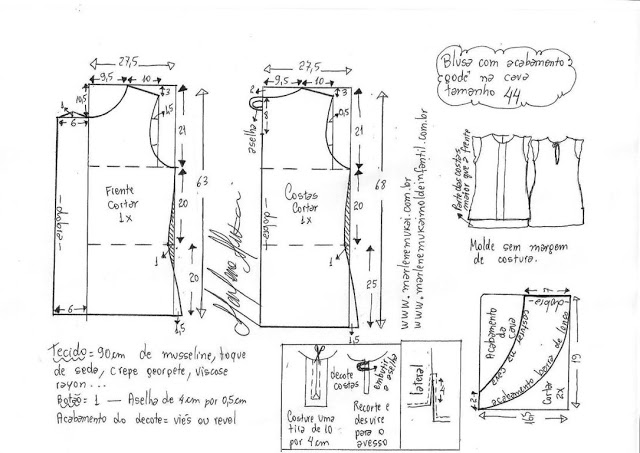 27,5
9,5
10
3
10,5
1
6
1,5
21
63
20
20
1
6
1,5
Frente
Cortar
1x
-dobra-
27,5
9,5
10
2
3
8
aselha
0,5
21
68
20
25
1
1,5
Costas
Cortar
1x
-dobra-
www.marlenemukai.com.br
www.marlenemukaimoldeinfantil.com.br
Blusa com acabamento
godê na cava
tamanho 44
Parte das costas
maior que a frente
Molde sem margem
de costura.
Tecido = 90cm de musseline, toque
de seda, crepe georgete, viscose
rayon...
Botão = 1 — Aselha de 4cm por 0,5cm
Acabamento do decote = viés ou revel
decote
costas
Costure uma
tira de 10
por 4cm
embutir
a aselha
Recorte e
desvire
para o
avesso
lateral
7
-dobra-
Acabamento
da
cava
acabamento barra de lenço
Cortar
2x
19
2
15